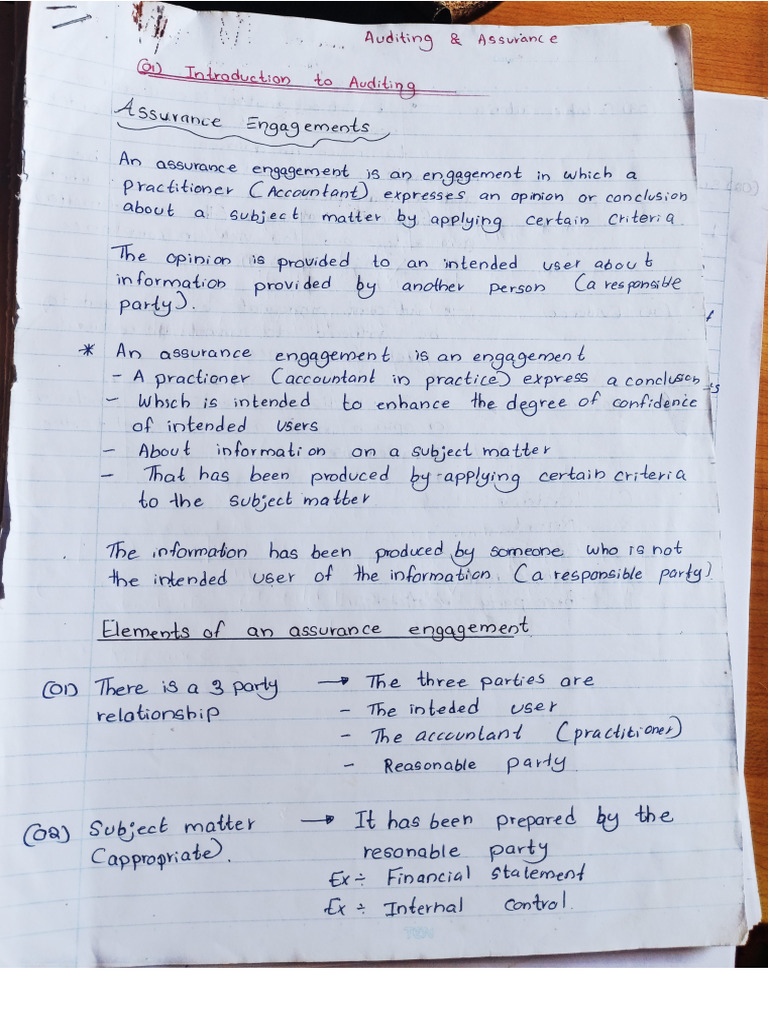 Auditing & Assurance
(01) Introduction to Auditing
Assurance Engagements
An assurance engagement is an engagement in which a
practitioner (Accountant) expresses an opinion or conclusion
about a subject matter by applying certain criteria
The opinion is provided to an intended user about
information provided by another person (a responsible
party).
* An assurance engagement is an engagement
- A practioner (accountant in practice) express a conclusion
- Which is intended to enhance the degree of confidence
of intended users
- About information on a subject matter
- That has been produced by applying certain criteria
to the subject matter
The information has been produced by someone who is not
the intended user of the information (a responsible party)
Elements of an assurance engagement
(01) There is a 3 party → The three parties are
relationship - The inteded user
- The accountant (practitioner)
- Reasonable party
(02) Subject matter → It has been prepared by the
(appropriate). resonable party
Ex÷ Financial statement
Ex÷ Internal control.